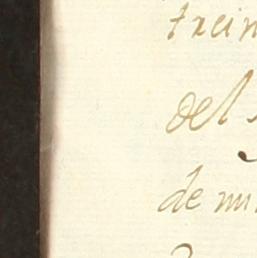 trein
del
de mi